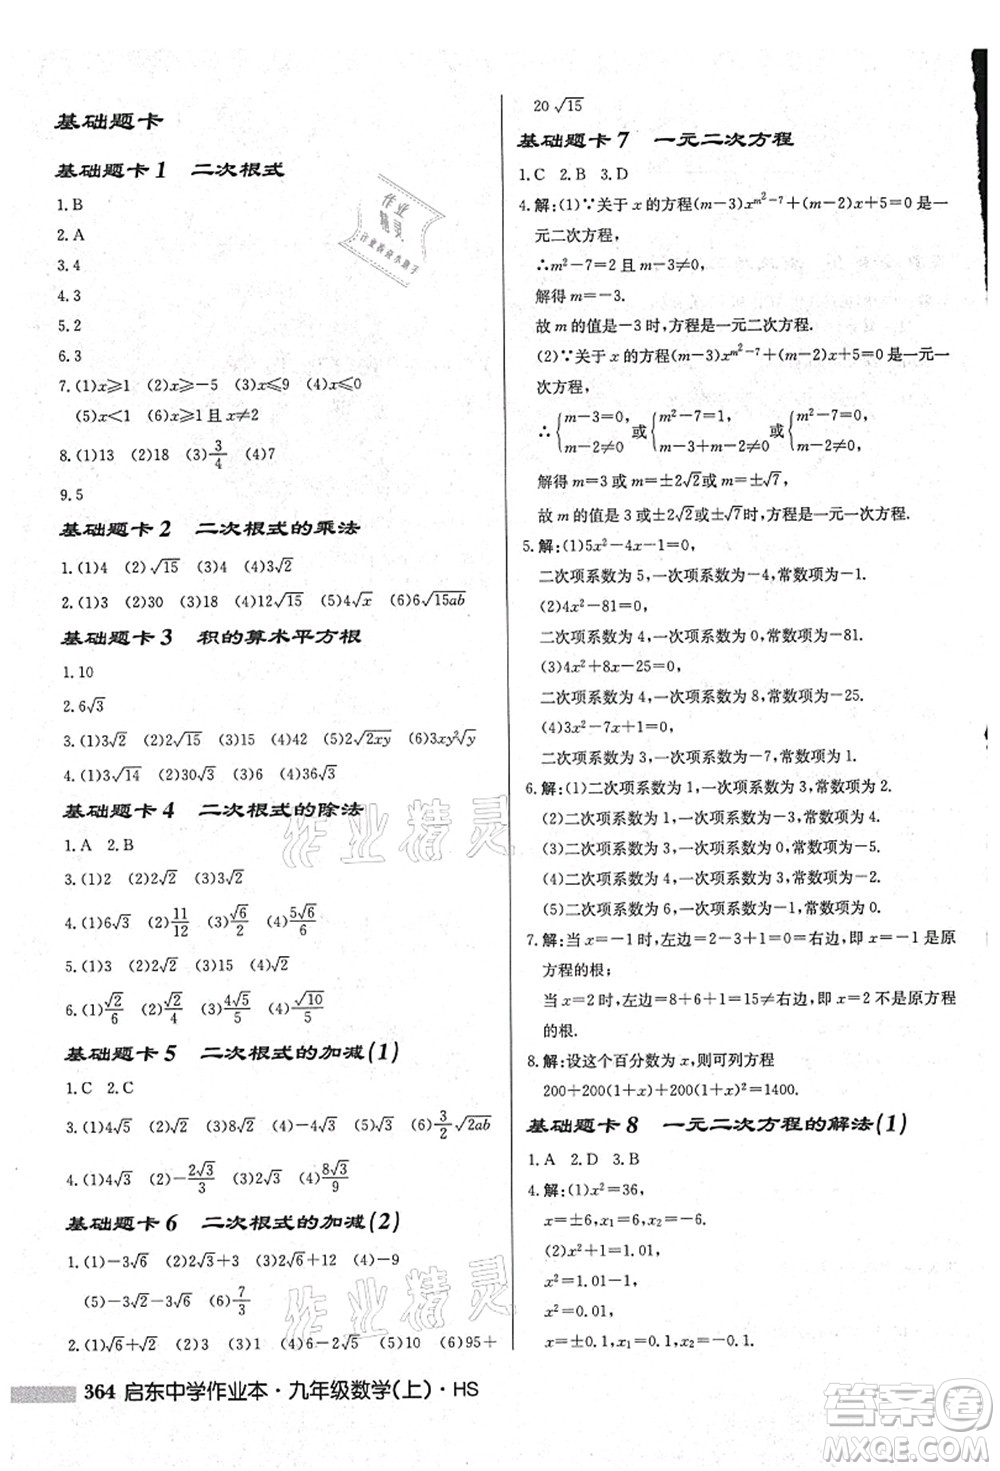 基础题卡
基础题卡1 二次根式
1.B
2.A
3.4
4.3
5.2
6.3
7.(1)x⩾1 (2)x⩾−5 (3)x⩽9 (4)x⩽0
(5)x<1 (6)x⩾1且x≠2
8.(1)13 (2)18 (3)3/4 (4)7
9.5
基础题卡2 二次根式的乘法
1.(1)4 (2)√15 (3)4 (4)3√2
2.(1)3 (2)30 (3)18 (4)12√15 (5)4√x (6)6√15ab
基础题卡3 积的算术平方根
1.10
2.6√3
3.(1)3√2 (2)2√15 (3)15 (4)42 (5)2√2xy (6)3xy²√y
4.(1)√14 (2)30√5 (3)48√2 (4)30√3
基础题卡4 二次根式的除法
1.A 2.B
3.(1)2 (2)3√2 (3)2√2
4.(1)6√3 (2)11/12 (3)√6/2 (4)5√6/6
5.(1)4 (2)3√2 (3)2√2
6.(1)√2/6 (2)√2/4 (3)4√5/5 (4)√10/5
基础题卡5 二次根式的加减(1)
1.C 2.C
3.(1)4√5 (2)2√5 (3)9√3 (4)√3 (5)√3 (6)3/2√2ab
4.(1)4√3 (2)−2√3/3 (3)2√3 (4)8√3/9
基础题卡6 二次根式的加减(2)
1.(1)−3√6 (2)2√3+3 (3)10√3 (4)−9
(5)−3√2−2√3 (6)7/3
2.(1)√6+√2 (2)4√3 (3)6 (4)9−2√3 (5)1 (6)95+
20√15
基础题卡7 一元二次方程
1.C 2.B 3.D
4.解:(1)∵关于x的方程(m−3)x^{m²−7}+(m−2)x+5=0是一
元二次方程,
∴m²−7=2且m−3≠0,
解得m=−3.
故m的值是−3时,方程是一元二次方程.
(2)∵关于x的方程(m−3)x^{m²−7}+(m−2)x+5=0是一元一
次方程,
∴{m−3=0, m−2≠0 或{m²−7=1, m−3+m−2≠0 或{m²−7=0, m−2≠0,
解得m=3或m=±2√2或m=±√7,
故m的值是3或±2√2或±√7时,方程是一元一次方程.
5.解:(1)5x²−4x−1=0,
二次项系数为5,一次项系数为−4,常数项为−1.
(2)4x²−81=0,
二次项系数为4,一次项系数为0,常数项为−81.
(3)4x²+8x−25=0,
二次项系数为4,一次项系数为8,常数项为−25.
(4)3x²−7x+1=0,
二次项系数为3,一次项系数为−7,常数项为1.
6.解:(1)二次项系数为1,一次项系数为3,常数项为2.
(2)二次项系数为1,一次项系数为−3,常数项为4.
(3)二次项系数为3,一次项系数为0,常数项为−5.
(4)二次项系数为4,一次项系数为3,常数项为−2.
(5)二次项系数为6,一次项系数为−1,常数项为0.
7.解:当x=−1时,左边=2−3+1=0=右边,即x=−1是原
方程的根;
当x=2时,左边=8+6+1=15≠右边,即x=2不是原方程
的根.
8.解:设这个百分数为x,则可列方程
200+200(1+x)+200(1+x)²=1400.
基础题卡8 一元二次方程的解法(1)
1.A 2.D 3.B
4.解:(1)x²=36,
x=±6,x₁=6,x₂=−6.
(2)x²+1=1.01,
x²=1.01−1,
x²=0.01,
x=±0.1,x₁=0.1,x₂=−0.1.
364 启东中学作业本·九年级数学(上)·HS
作业精灵
作业精灵
作业精灵
答案圈
MXQE.COM